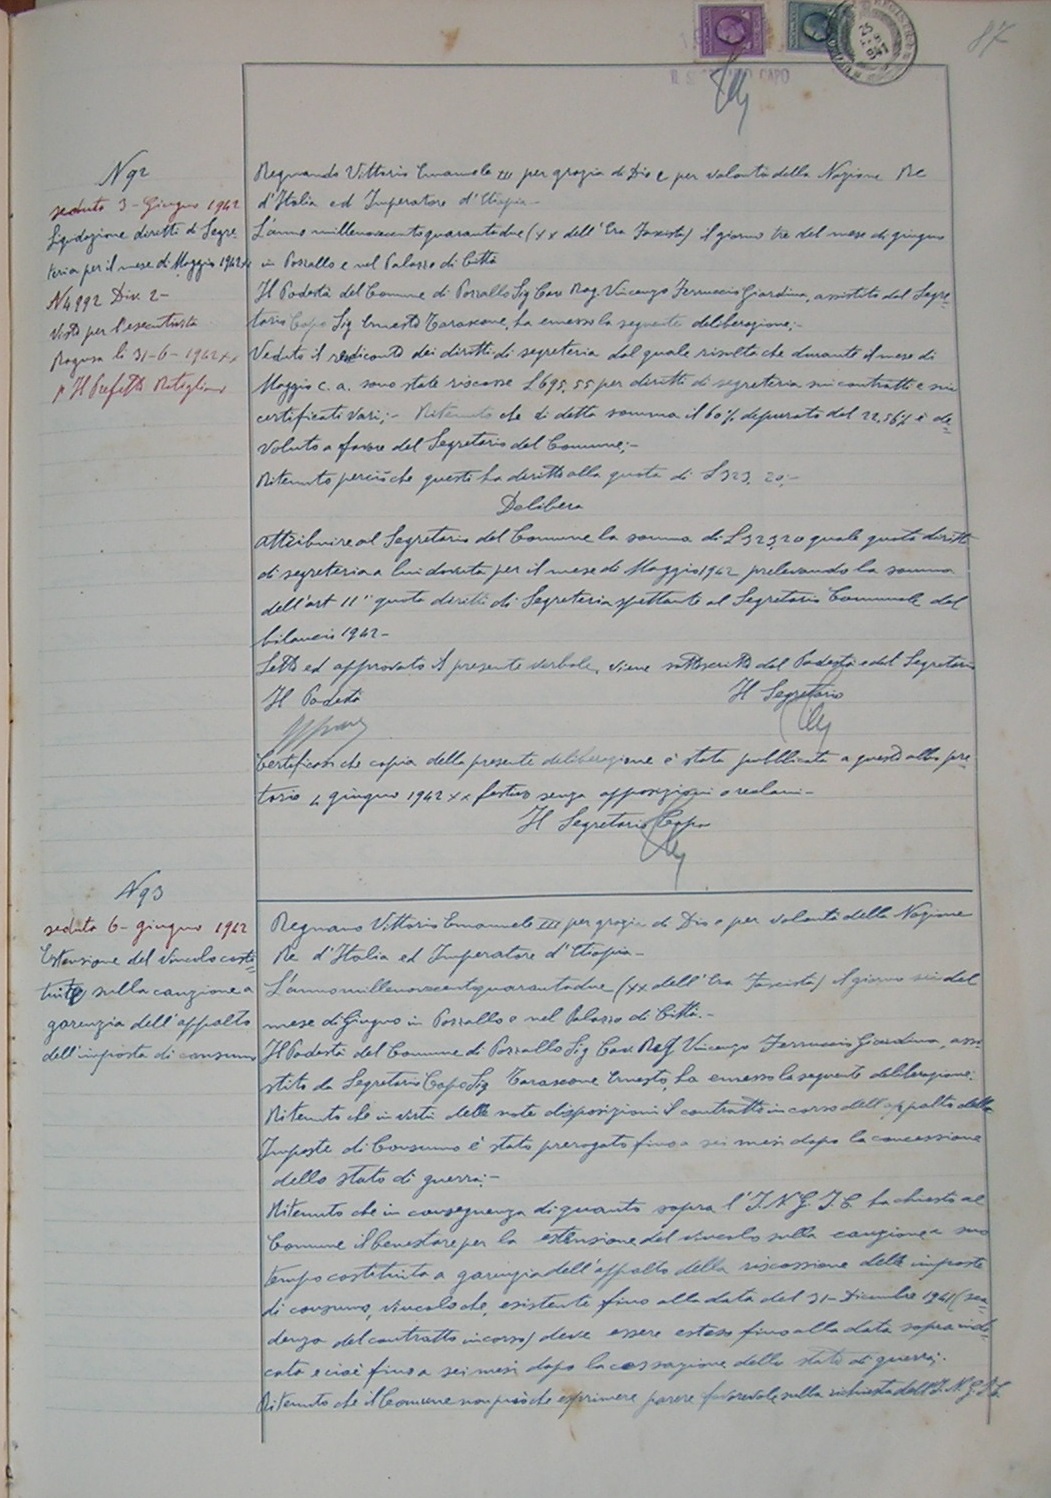 87
IL SEGRETARIO CAPO
N 92
seduta 3 - Giugno 1942
Liquidazione diritti di Segre-
teria per il mese di Maggio 1942 xx
N 4992 Div. 2 -
Visto per l'esecutività
Ragusa li 31-6-1942 xx
p Il Prefetto
Regnando Vittorio Emanuele III per grazia di Dio e per volontà della Nazione Re
d'Italia ed Imperatore d'Etiopia -
L'anno millenovecentoquarantadue (XX dell'Era Fascista) il giorno tre del mese di giugno
in Pozzallo e nel Palazzo di Città
Il Podestà del Comune di Pozzallo Sig Cav Rag. Vincenzo Ferruccio Giardina, assistito dal Segre-
tario Capo Sig Ernesto Tarascone, ha emesso la seguente deliberazione: -
Veduto il rendiconto dei diritti di segreteria dal quale risulta che durante il mese di
Maggio c. a. sono state riscosse £ 695,55 per diritti di segreteria sui contratti e sui
certificati vari; - Ritenuto che di detta somma il 60% depurato dal 22,56% è de-
voluto a favore del Segretario del Comune; -
Ritenuto perciò che questi ha diritto alla quota di £ 323,20; -
Delibera
attribuire al Segretario del Comune la somma di £ 323,20 quale quota diritti
di segreteria a lui dovuta per il mese di Maggio 1942 prelevando la somma
dell'art 11 "quota diritti di Segreteria spettante al Segretario Comunale dal
bilancio 1942 -
Letto ed approvato il presente verbale, viene sottoscritto dal Podestà e dal Segretario
Il Podestà Il Segretario
Certificasi che copia della presente deliberazione è stata pubblicata a questo albo pre-
torio 4 giugno 1942 xx festivo senza opposizioni o reclami -
Il Segretario Capo
N 93
seduta 6 - giugno 1942
Estensione del vincolo costi-
tuito sulla cauzione a
garenzia dell'appalto
dell'imposta di consumo
Regnano Vittorio Emanuele III per grazia di Dio e per volontà della Nazione
Re d'Italia ed Imperatore d'Etiopia -
L'anno millenovecentoquarantadue (XX dell'Era Fascista) il giorno sei del
mese di Giugno in Pozzallo e nel Palazzo di Città. -
Il Podestà del Comune di Pozzallo Sig Cav Rag Vincenzo Ferruccio Giardina, assi-
stito da Segretario Capo Sig Tarascone Ernesto, ha emesso la seguente deliberazione:
Ritenuto che in virtù delle note disposizioni il contratto in corso dell'appalto delle
Imposte di Consumo è stato prorogato fino a sei mesi dopo la concessione
dello stato di guerra; -
Ritenuto che in conseguenza di quanto sopra l'I.N.G.I.C. ha chiesto al
Comune il benestare per la estensione del vincolo sulla cauzione a suo
tempo costituita a garenzia dell'appalto della riscossione delle imposte
di consumo, vincolo che, esistente fino alla data del 31 - Dicembre 1941 (sca-
denza del contratto in corso) deve essere esteso fino alla data sopra indi-
cata e cioè fino a sei mesi dopo la cessazione dello stato di guerra;.
Ritenuto che il Comune non può che esprimere parere favorevole sulla richiesta dell'I.N.G.I.C.